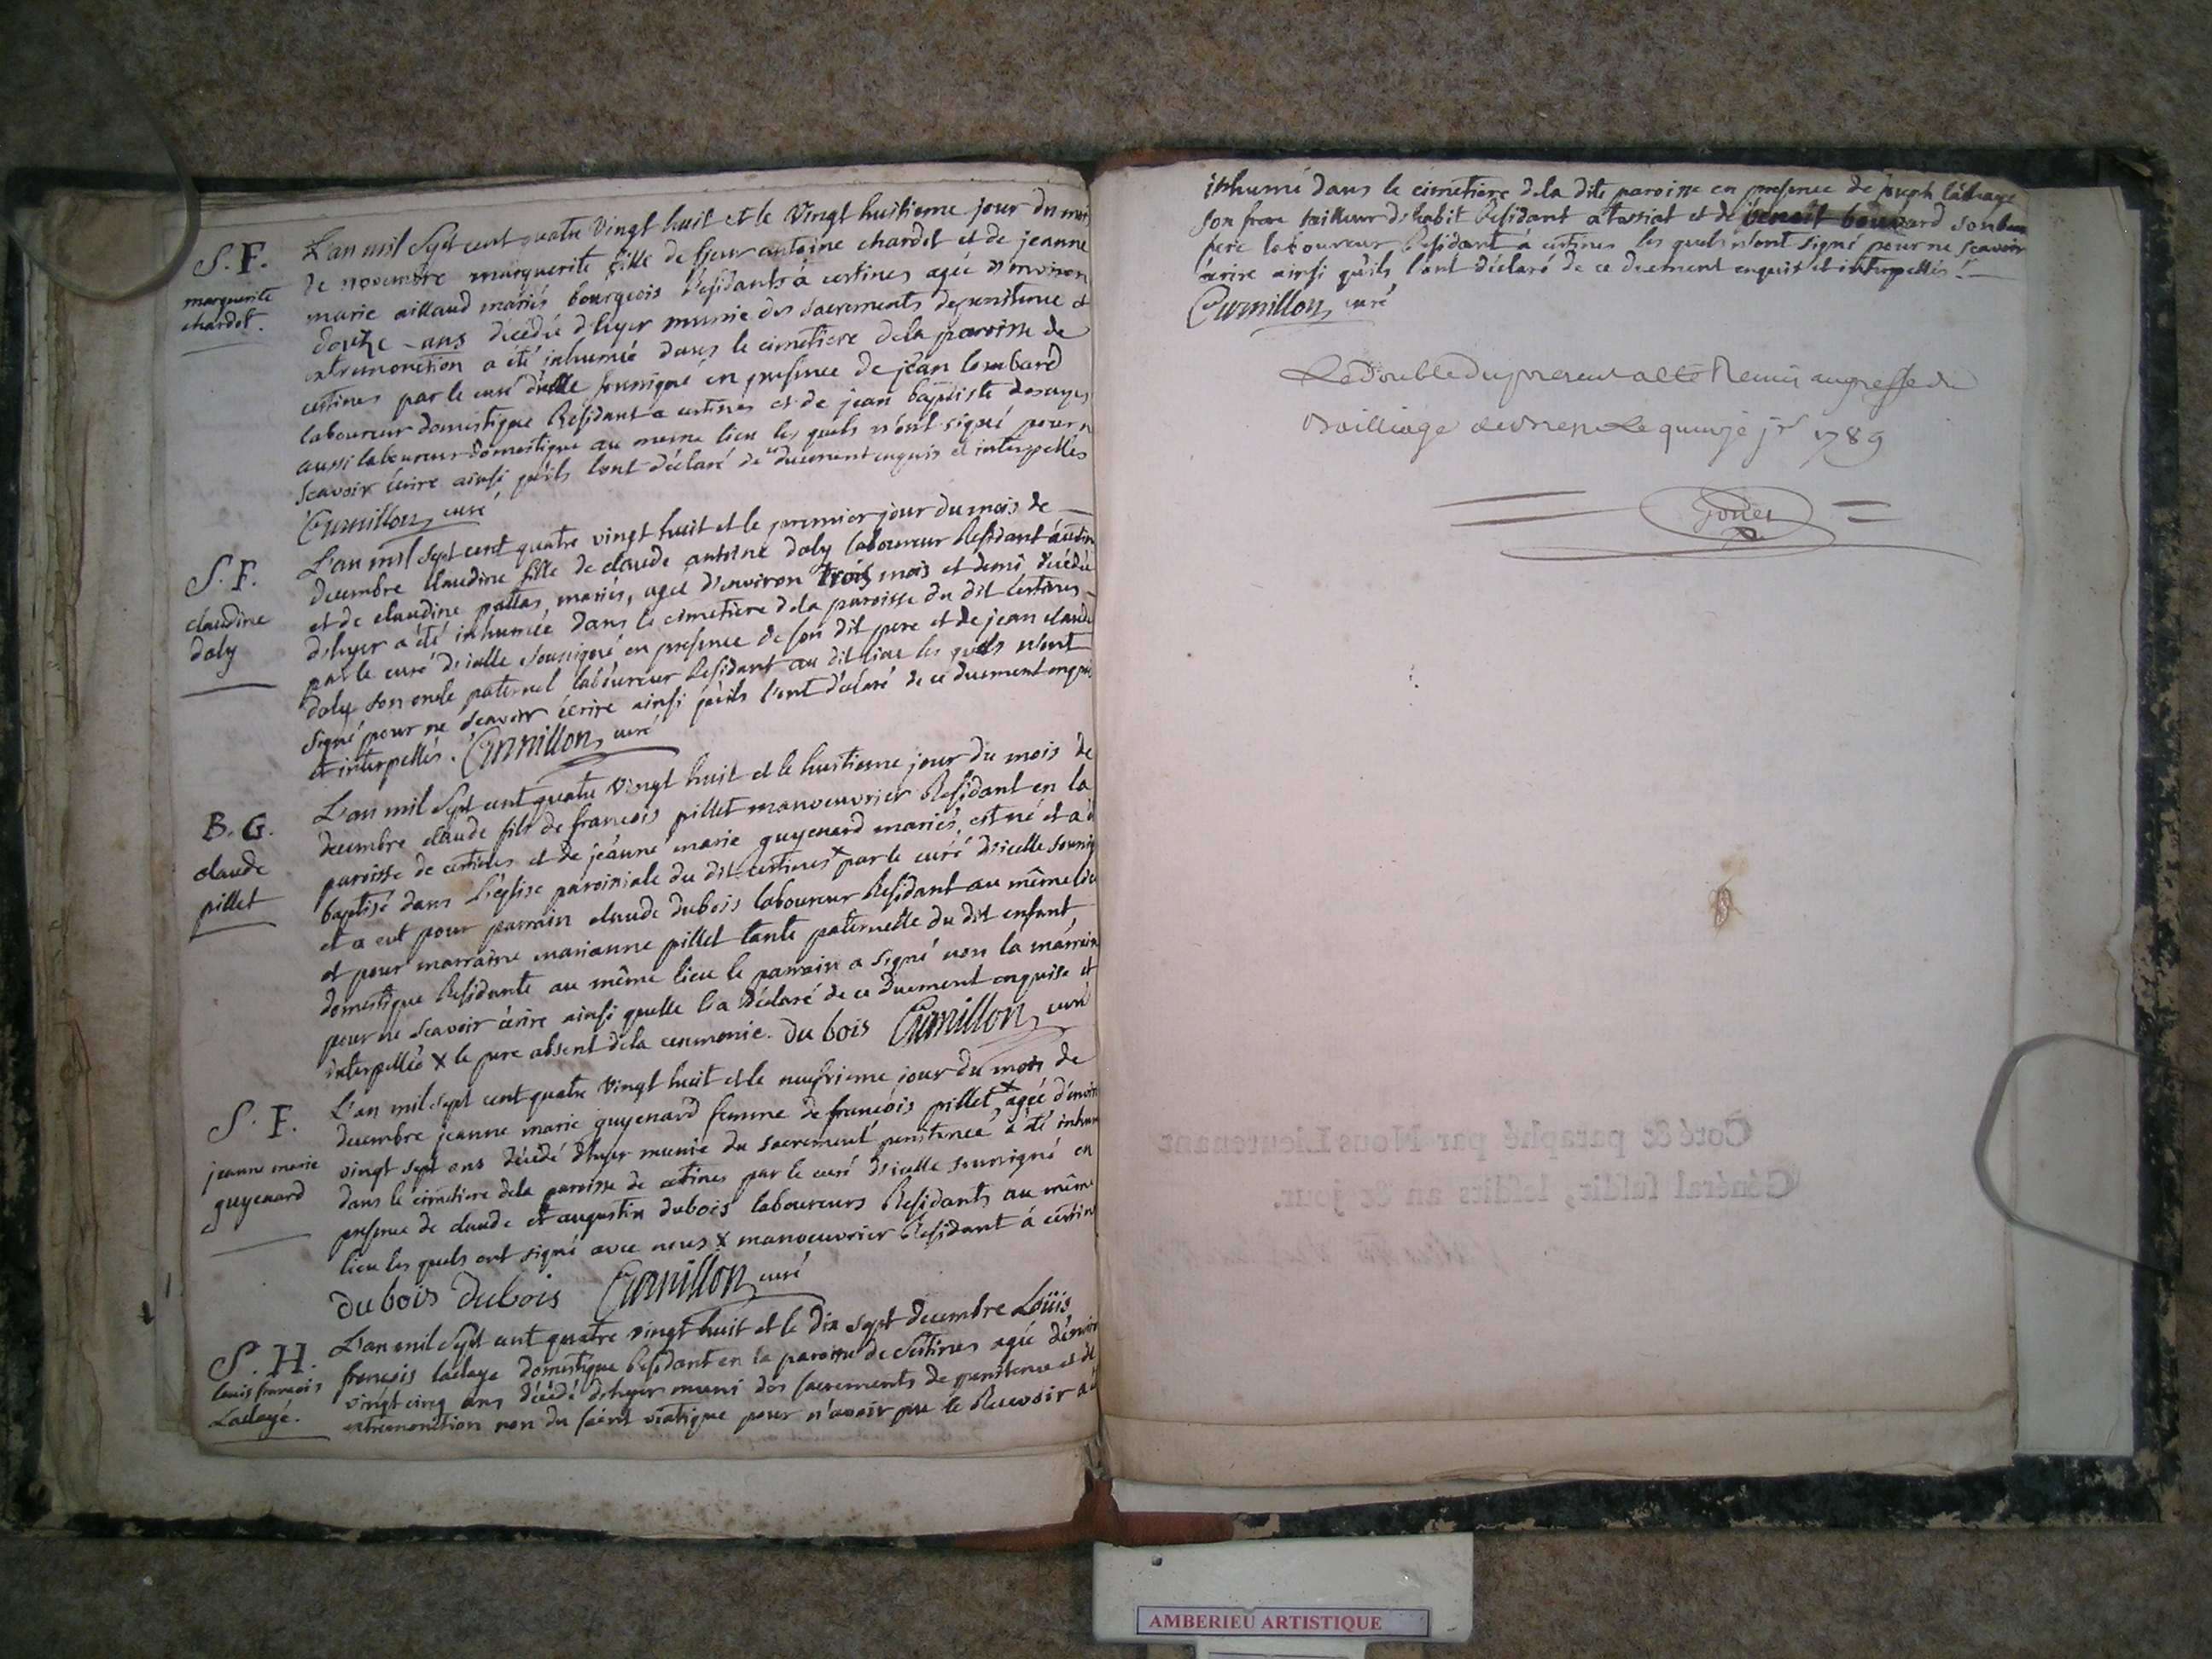 S. F.
marguerite
chardot.
L'an mil Sept cent quatre Vingt huit et le Vingt huitieme jour du mois
de novembre marguerite fille de sieur antoine chardot et de jeanne
marie aillaud mariés bourgeois Residants à certines agée d'environ
douze ans décédée d'hyer munie des sacrements de penitence et
extremonction a été inhumée dans le cimetiere de la paroisse de
certines par le curé d'icelle soussigné en presence de jean lombard
laboureur domestique Residant a certines et de jean baptiste desayes
aussi laboureur domestique au meme lieu les quels n'ont signé pour n
scavoir écrire ainsi qu'ils l'ont déclaré de ce duement enquis et interpellés
Curnillon, curé
S. F.
claudine
doly
L'an mil Sept cent quatre vingt huit et le premier jour du mois de
decembre Claudine fille de claude antoine doly laboureur Residant à certin
et de claudine pattas, mariés, agée d'environ trois mois et demi décédée
d'hyer a été inhumée dans le cimetière de la paroisse du dit certines
par le curé d'icelle soussigné en presence de son dit pere et de jean claude
doly son oncle paternel laboureur Residant au dit lieu les quels n'ont
signé pour ne scavoir écrire ainsi qu'ils l'ont déclaré de ce duement enquis
et interpellés. Curnillon, curé
B. G.
claude
pillet
L'an mil Sept cent quatre Vingt huit et le huitieme jour du mois de
decembre claude fils de francois pillet manoeuvrier Residant en la
paroisse de certines et de jeanne marie guyenard mariés, est né et a é
baptisé dans l'eglise paroissiale du dit certines x par le curé d'icelle soussig
et a eut pour parrain claude dubois laboureur Residant au même lieu
et pour marraine marianne pillet tante paternelle du dit enfant,
domestique Residante au même lieu le parrain a signé non la marrain
pour ne scavoir écrire ainsi quelle l'a déclaré de ce duement enquise et
interpellée x le pere absent de la ceremonie. du bois Curnillon, curé
S. F.
jeanne marie
guyenard
L'an mil Sept cent quatre vingt huit et le neufvieme jour du mois de
decembre jeanne marie guyenard femme de francois pillet x agée d'environ
vingt sept ans décédé d'hyer munie du sacrement penitence a été inhum
dans le cimetiere de la paroisse de certines par le curé d'icelle soussigné en
presence de claude et augustin dubois laboureurs Residants au même
lieu les quels ont signé avec nous x manoeuvrier Residant à certin
du bois dubois Curnillon, curé
S. H.
louis francois
Ladaye.
L'an mil Sept cent quatre vingt huit et le dix sept decembre Loüis
francois ladaye domestique Residant en la paroisse de Certines agée d'environ
vingt cinq ans décédé d'hyer muni des sacrements de penitence et de
extremonction non du saint viatique pour n'avoir pu le Recevoir a é
inhumé dans le cimetière de la dite paroisse en presence de joseph ladaye
son frere tailleur d'habit Residant a tossiat et de benoit bouvard son beau
pere laboureur Residant à certines les quels n'ont signé pour ne scavoir
écrire ainsi qu'ils l'ont déclaré de ce duement enquis et interpellés
Curnillon, curé
Le Double du present a eté Remis au greffe du
Bailliage de Bresse Le quinze jr 1789
Coté & paraphé par Nous Lieutenant
Général susdit, lesdits an & jour.
AMBERIEU ARTISTIQUE